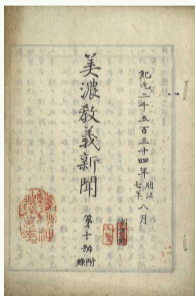 紀元二千五百三十四年明治七年八月
美濃教義新聞
第十號附錄